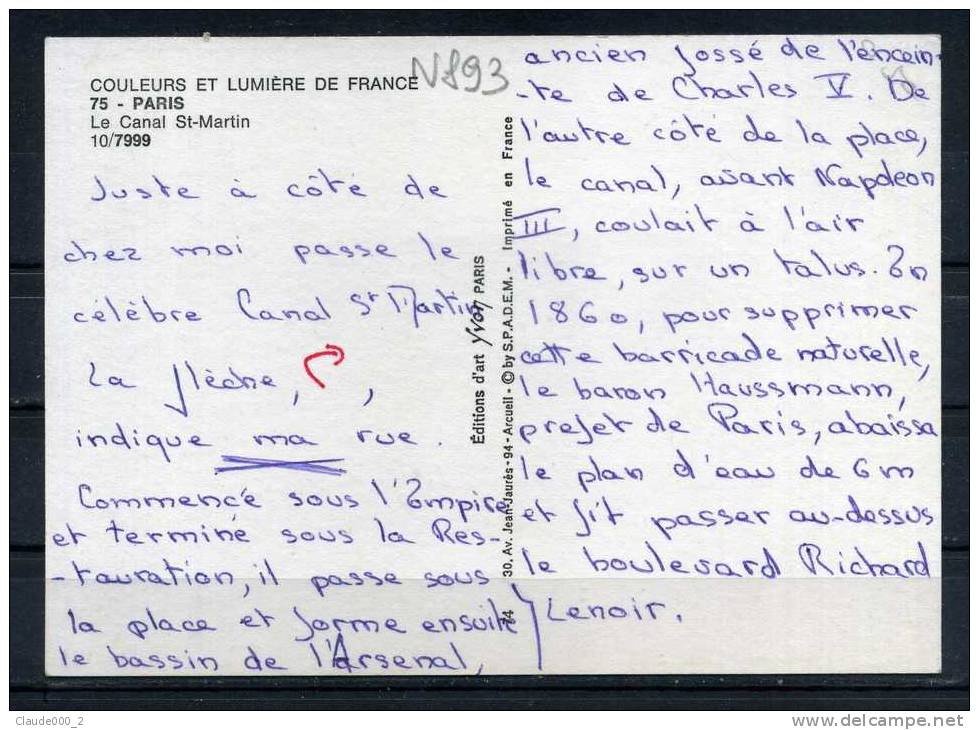 COULEURS ET LUMIÈRE DE FRANCE
75 - PARIS
Le Canal St-Martin
10/7999
N893
Juste à côté de
chez moi passe le
célèbre Canal St Martin
La flèche, ,
indique ma rue.
Commencé sous l'Empire
et terminé sous la Res-
-tauration, il passe sous
la place et forme ensuite
le bassin de l'Arsenal,
Éditions d'art Yvon PARIS
74 30, Av. Jean-Jaurès - 94 - Arcueil - © by S.P.A.D.E.M. - Imprimé en France
ancien fossé de l'encein-
-te de Charles V. De
l'autre côté de la place,
le canal, avant Napoleon
III, coulait à l'air
libre, sur un talus. En
1860, pour supprimer
cette barricade naturelle,
le baron Haussmann,
prefet de Paris, abaissa
le plan d'eau de 6m
et fit passer au-dessus
le boulevard Richard
Lenoir.
Claude000_2
www.delcampe.net